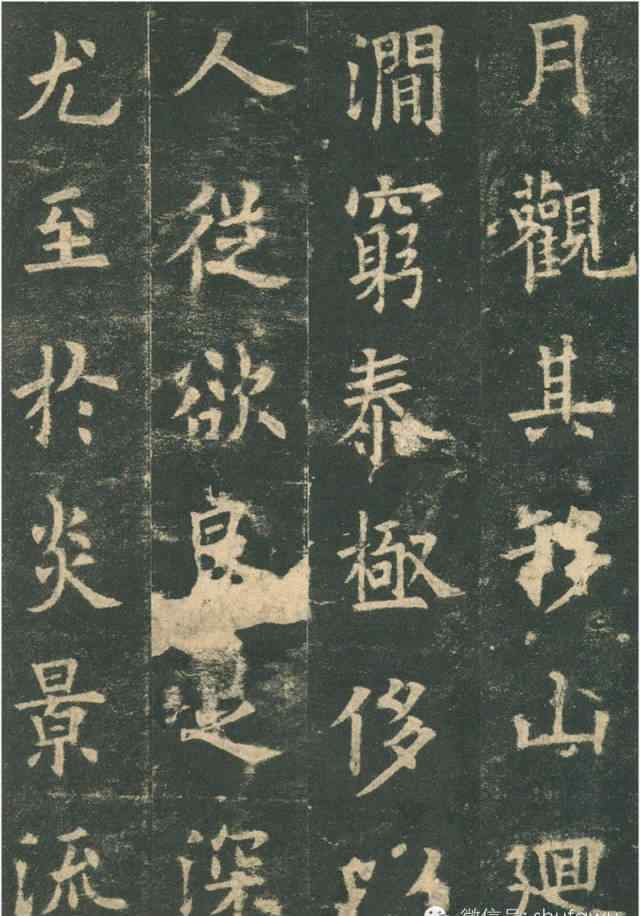 月觀其移山廻
澗窮泰極侈以
人從欲良足深
尤至於炎景流
微信号: shufawu